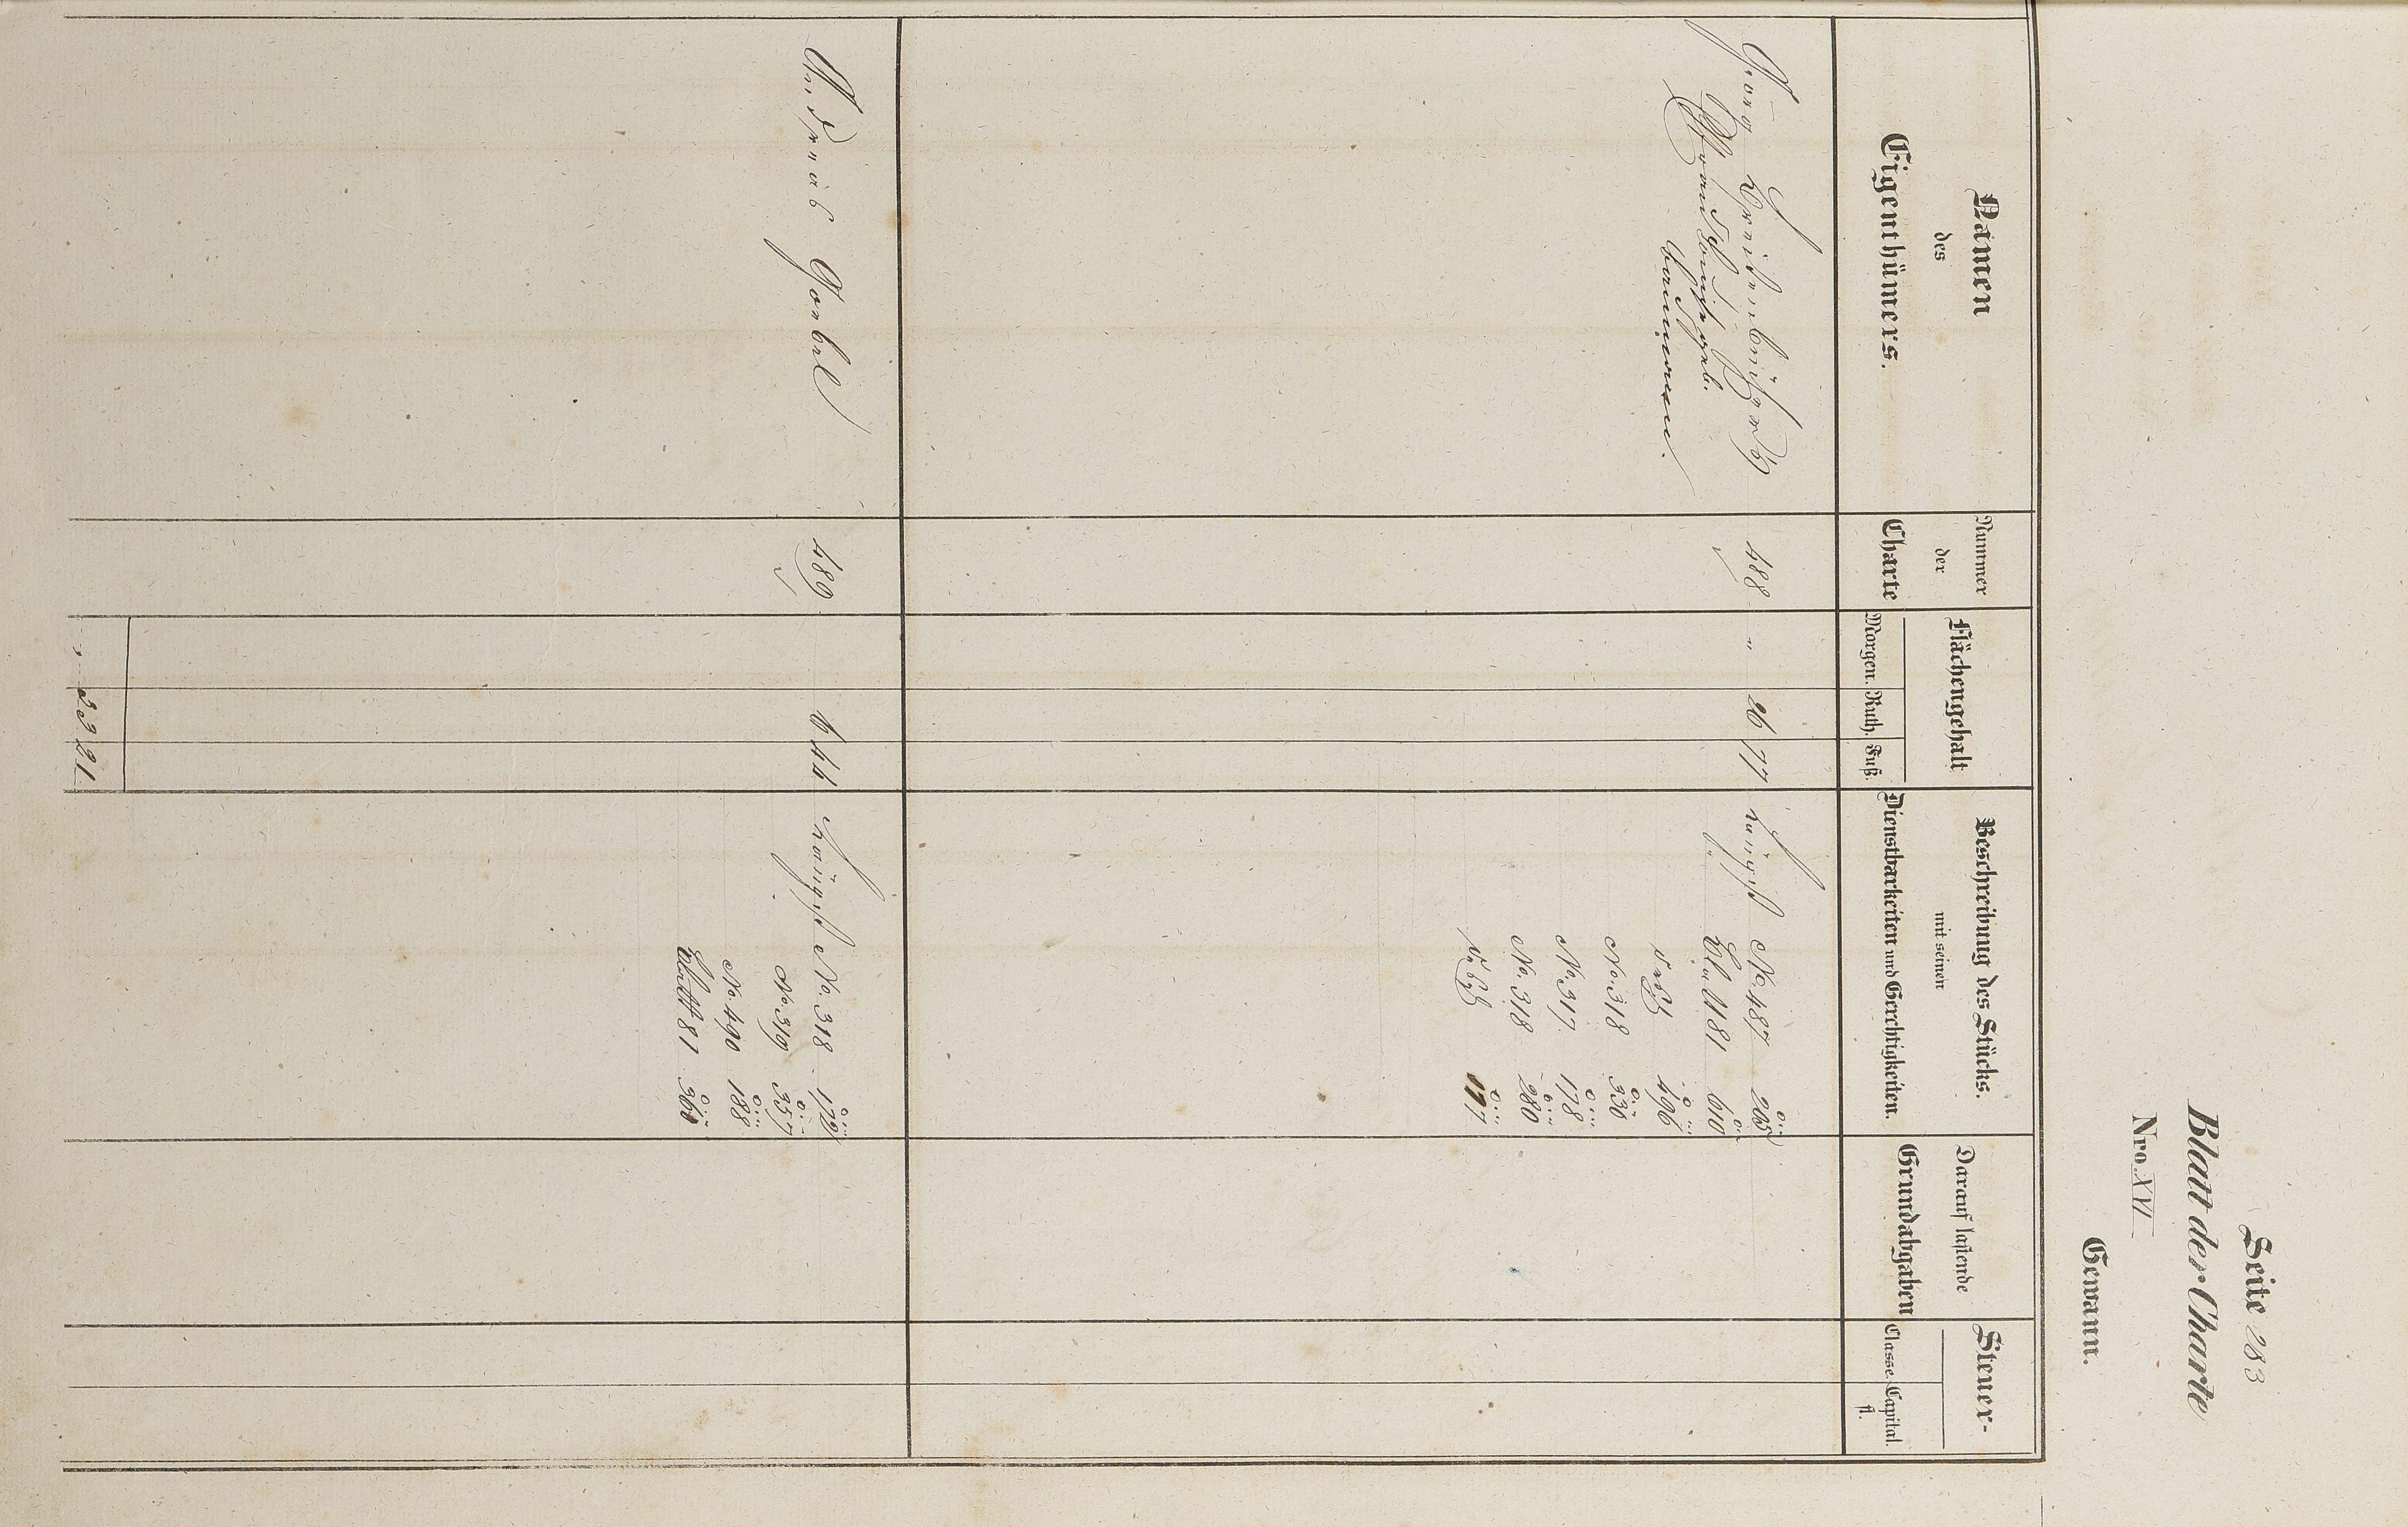 Seite 283
Blatt der Charte
Nro XVI
Gewann.
Namen
des
Eigenthümers.
Nummer
der
Charte
Flächengehalt
Morgen. Ruth. Fuß.
Beschreibung des Stücks.
mit seinen
Dienstbarkeiten und Gerechtigkeiten.
Darauf lastende
Grundabgaben
Steuer-
Classe. Capital.
fl.
Georg
geb.
488 " 26 77 No. 487. 205
Blatt 81 610
desgl. 496
No. 318 330
No. 317. 178
No. 318 280
desgl. 177
Andreas Goebel
489 6 44 No. 318 179
No. 319 357
No. 490 188
Blatt 81 360
" 33 21